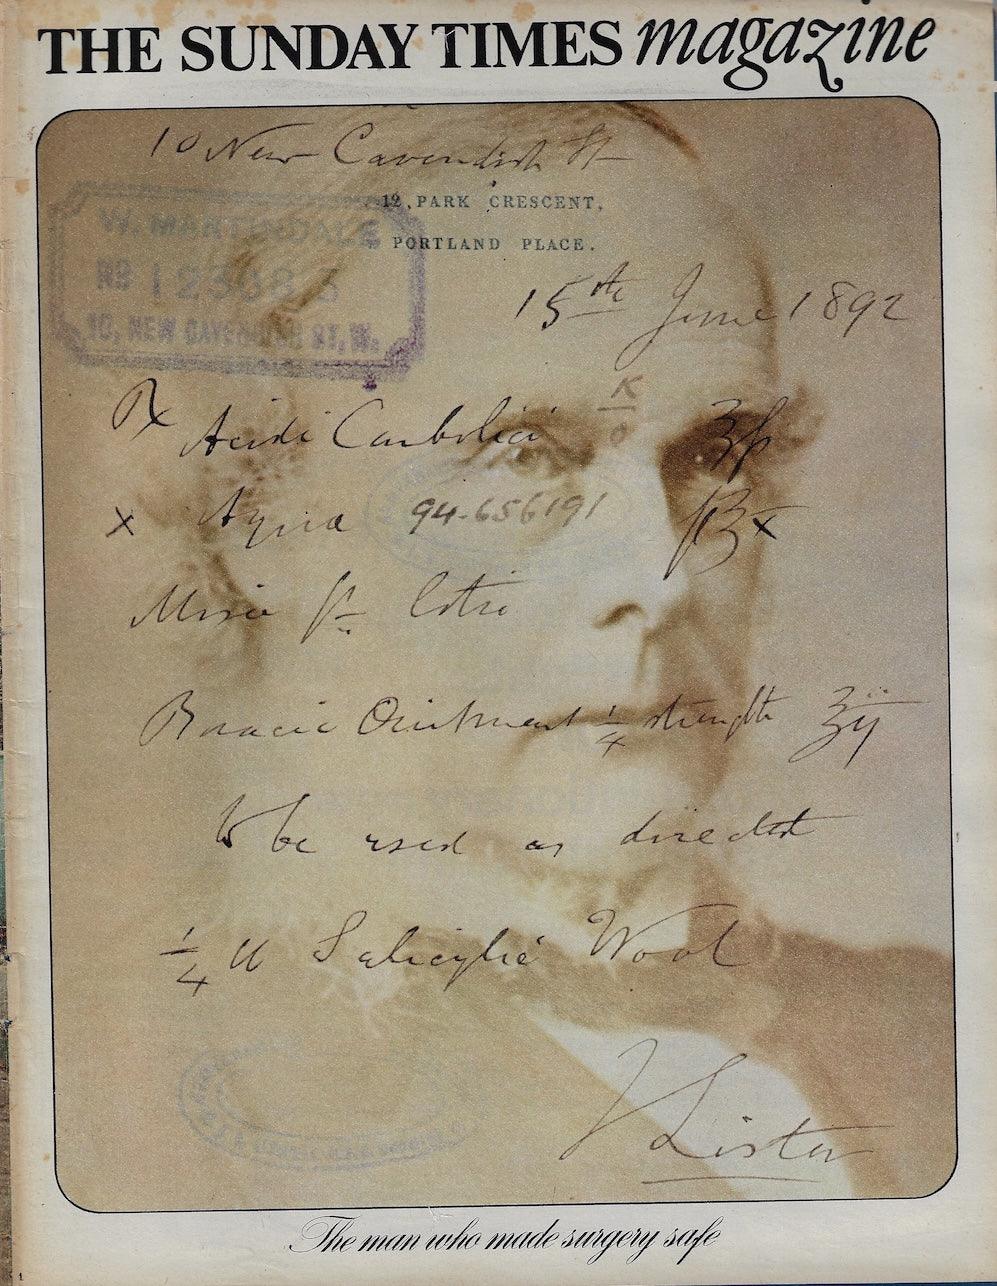 THE SUNDAY TIMES magazine
10 New Cavendish St
12, PARK CRESCENT,
PORTLAND PLACE.
W. MARTINDALE
No 123083
10, NEW CAVENDISH ST, W.
15th June 1892
K
O
℞ Acidi Carbolici ʒſ
x Aqua 94-656191 x
Misce ft Lotio
Boracic Ointment 1/4 strength ʒij
to be used as directed
1/4 lb Salicylic Wool
J Lister
The man who made surgery safe
1